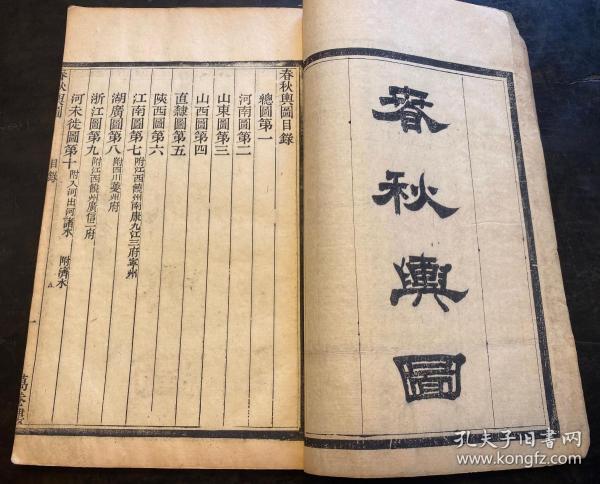 春秋輿圖
春秋輿圖目錄
總圖第一
河南圖第二
山東圖第三
山西圖第四
直隸圖第五
陝西圖第六
江南圖第七附江西饒州南康九江三府寧州
湖廣圖第八附四川夔州府
浙江圖第九附江西饒州廣信二府
河未徙圖第十附入河出河諸水 附濟水
春秋輿圖 目錄 一 萬卷樓
孔夫子旧书网
www.kongfz.com